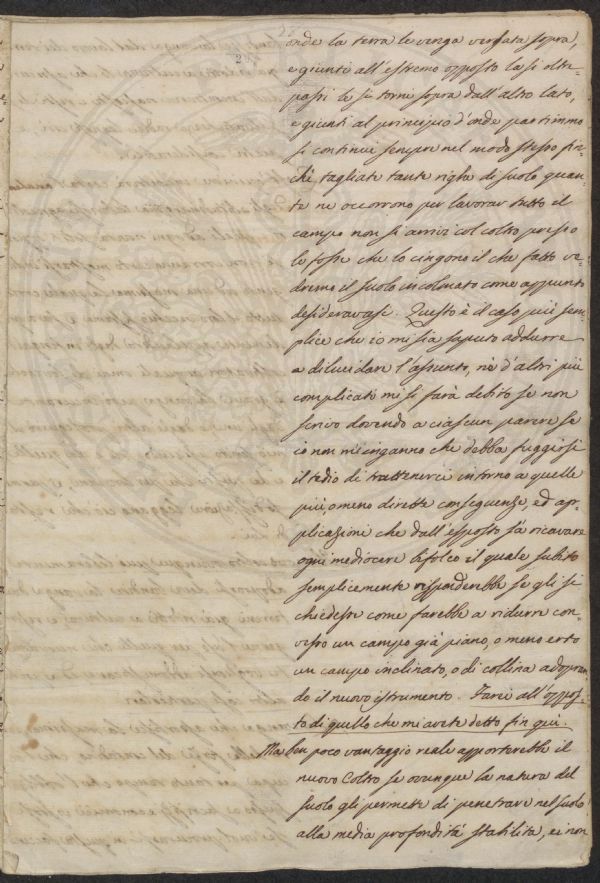 onde la terra le venga versata sopra,
e giunti all'estremo opposto la si oltre
passi le si torni sopra dall'altro lato,
e giunti al principio d'onde partimmo
si continui sempre nel modo stesso fin
chè tagliate tante righe di suolo quan
te ne occorrono per lavorar tutto il
campo non si arrivi col coltro presso
le fosse che lo cingono il che fatto ve
dremo il suolo incolmato come appunto
desideravasi. Questo è il caso più sem
plice che io mi sia saputo addurre
a dilucidare l'assunto, nè d'altri più
complicati mi si farà debito se non
scrivo dovendo a ciascun parere se
io non m'inganno che debba fuggirsi
il tedio di trattenerci intorno a quelle
più, o meno dirette conseguenze, ed ap
plicazioni che dall'esposto sà ricavare
ogni mediocre bifolco il quale subito
semplicemente risponderebbe se gli si
chiedesse come farebbe a ridurre con
verso un campo già piano, o meno erto
un campo inclinato, o di collina adopran
do il nuovo istrumento. Farei all'oppos
to di quello che mi avete detto fin qui.
Ma ben poco vantaggio reale apporterebbe il
nuovo Coltro se ovunque la natura del
suolo gli permette di penetrare nel suolo
alla media profondità stabilita, ei non